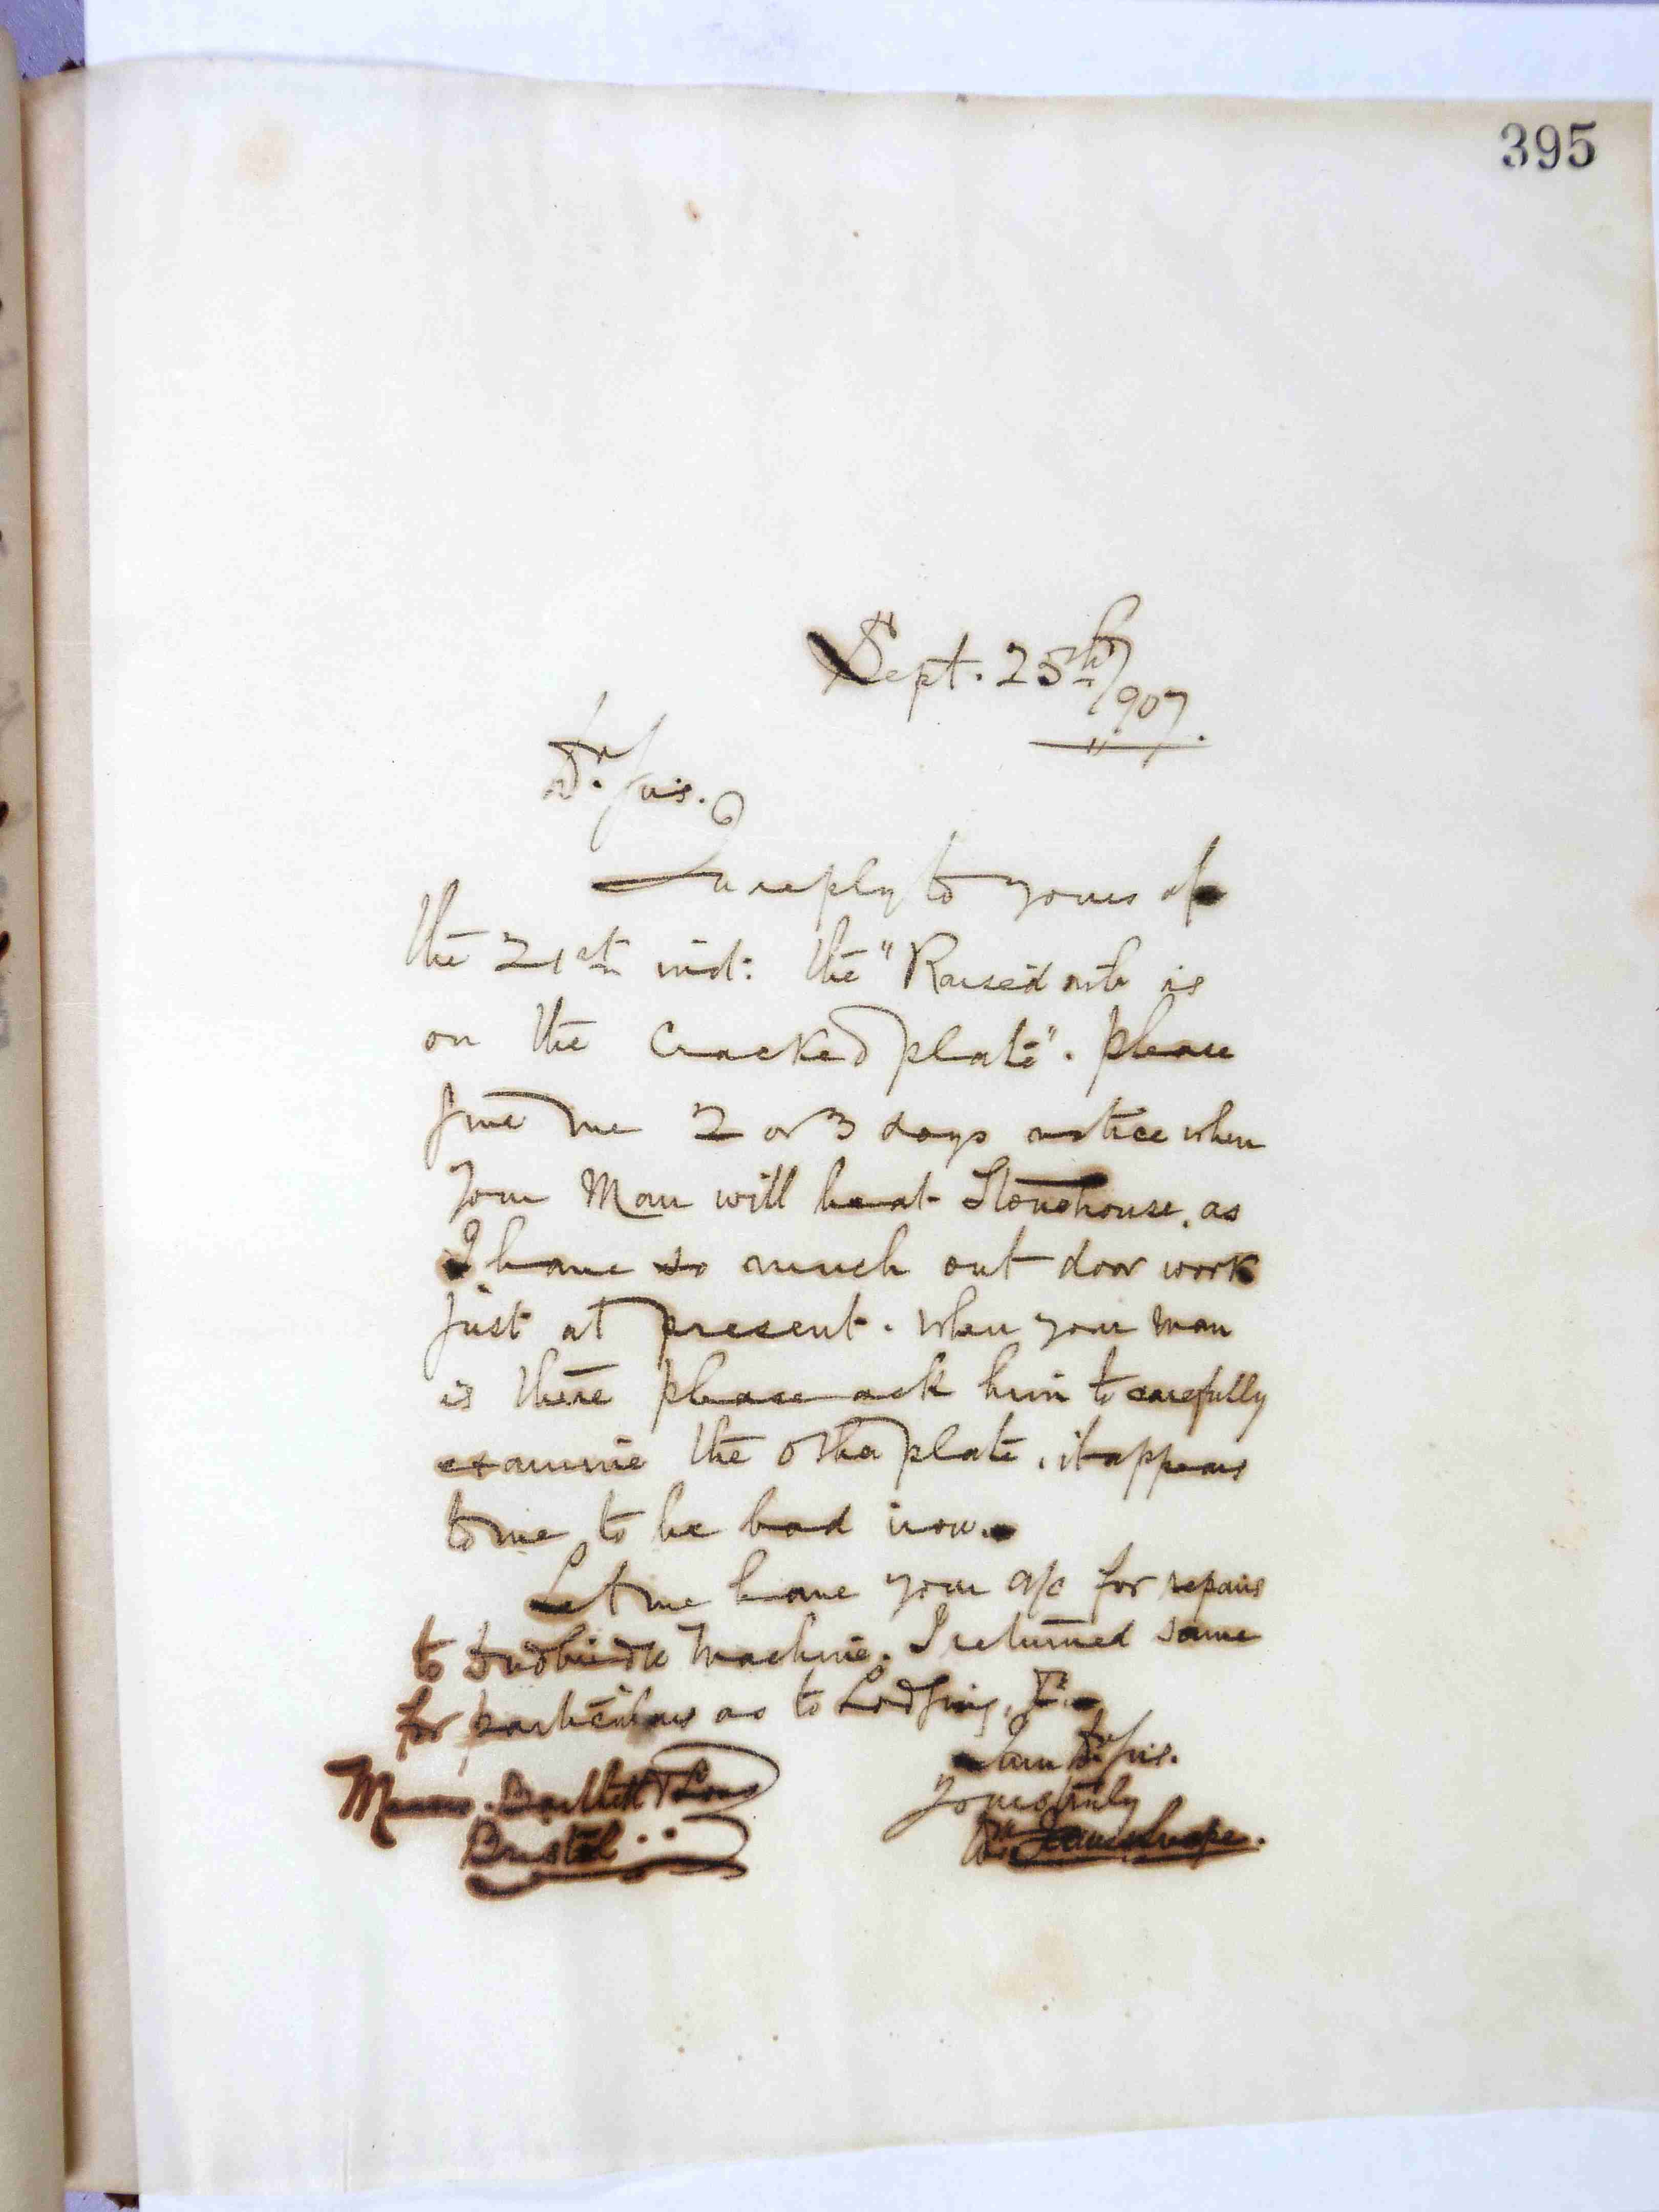 395
Sept. 25th/1907.
Dr Sirs.
In reply to yours of
the 21st inst: the "Raised rib is
on the Cracked plate". please
give me 2 or 3 days notice when
your Man will be at Stonehouse, as
I have so much out door work
just at present. When your man
is there please ask him to carefully
examine the other plate, it appears
to me to be bad now.
Let me have your a/c for repairs
to Machine. I returned same
for particulars as to Lodging,
I am Dr Sirs.
Yours truly
Messrs. Bartlett & Sons
Bristol